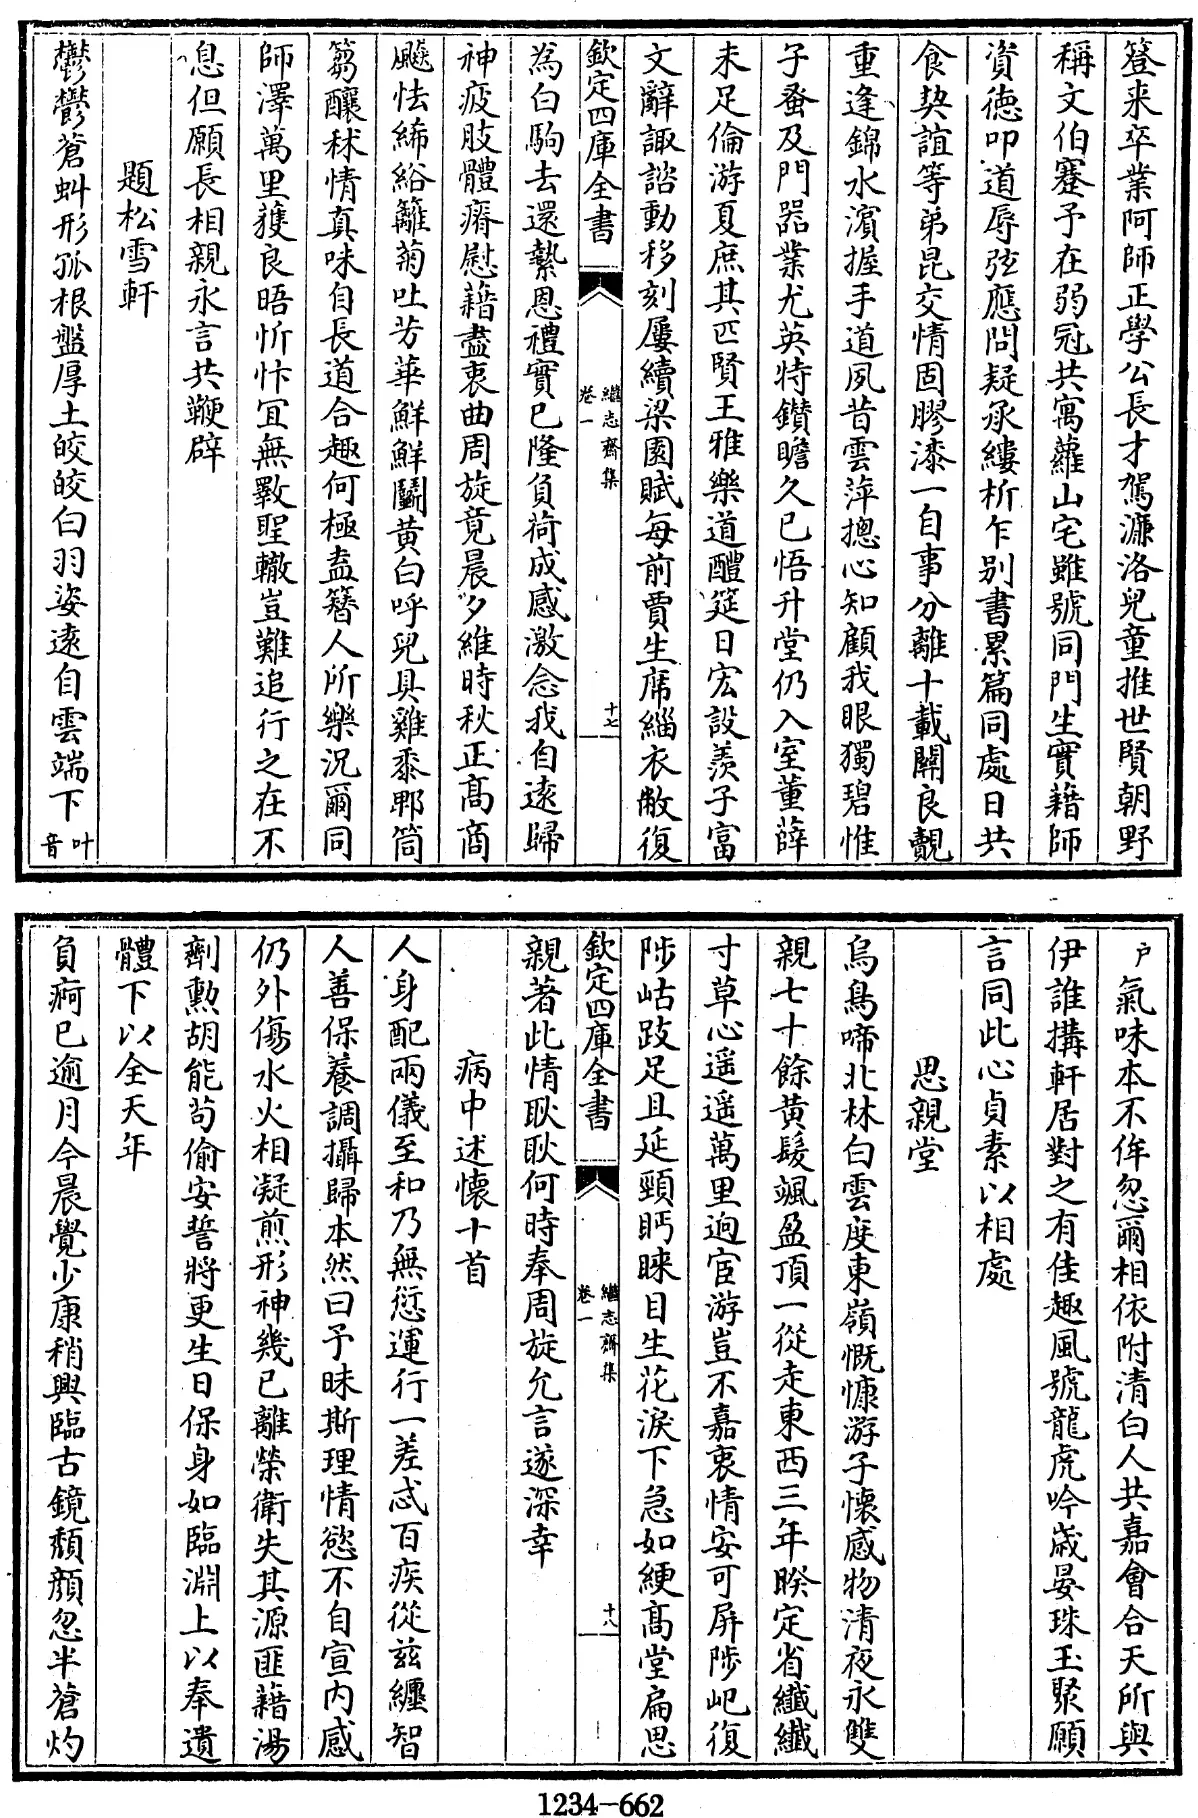 簦来卒業阿師正學公長才駕濂洛兒童推世賢朝野
稱文伯蹇予在弱冠共寓蘿山宅雖號同門生實藉師
資徳叩道辱弦應問疑承縷析乍别書累篇同處日共
食契誼等弟昆交情固膠漆一自事分離十載闗良覿
重逢錦水濵握手道夙昔雲萍摠心知顧我眼獨碧惟
子蚤及門器業尤英特鑚瞻久已悟升堂仍入室董薛
未足倫游夏庶其匹賢王雅樂道醴筵日宏設羨子富
文辭諏諮動移刻屢續梁園賦每前賈生席緇衣敝復
欽定四庫全書
繼志齋集
卷一
十七
為白駒去還縶恩禮實已隆負荷成感激念我自逺歸
神疲肢體瘠慰藉盡衷曲周旋竟晨夕維時秋正髙商
飇怯絺綌籬菊吐芳華鮮鮮鬭黄白呼兒具雞黍郫筒
芻釀秫情真味自長道合趣何極盍簪人所樂況爾同
師澤萬里獲良晤忻忭宜無斁聖轍豈難追行之在不
息但願長相親永言共鞭辟
題松雪軒
鬱鬱蒼虯形孤根盤厚土皎皎白羽姿逺自雲端下叶音
户氣味本不侔忽爾相依附清白人共嘉會合天所與
伊誰搆軒居對之有佳趣風號龍虎吟歳晏珠玉聚願
言同此心貞素以相處
思親堂
烏鳥啼北林白雲度東嶺慨慷游子懐感物清夜永雙
親七十餘黄髮颯盈頂一從走東西三年暌定省纎纎
寸草心遥遥萬里逈宦游豈不嘉衷情安可屏陟屺復
陟岵跂足且延頸眄睞目生花淚下急如綆髙堂扁思
欽定四庫全書
繼志齋集
卷一
十八
親著此情耿耿何時奉周旋允言遂深幸
病中述懐十首
人身配兩儀至和乃無愆運行一差忒百疾從兹纒智
人善保養調攝歸本然曰予昧斯理情慾不自宣内感
仍外傷水火相凝煎形神幾已離榮衛失其源匪藉湯
劑勲胡能茍偷安誓將更生日保身如臨淵上以奉遺
體下以全天年
負疴已逾月今晨覺少康稍興臨古鏡頽顔忽半蒼灼
1234-662